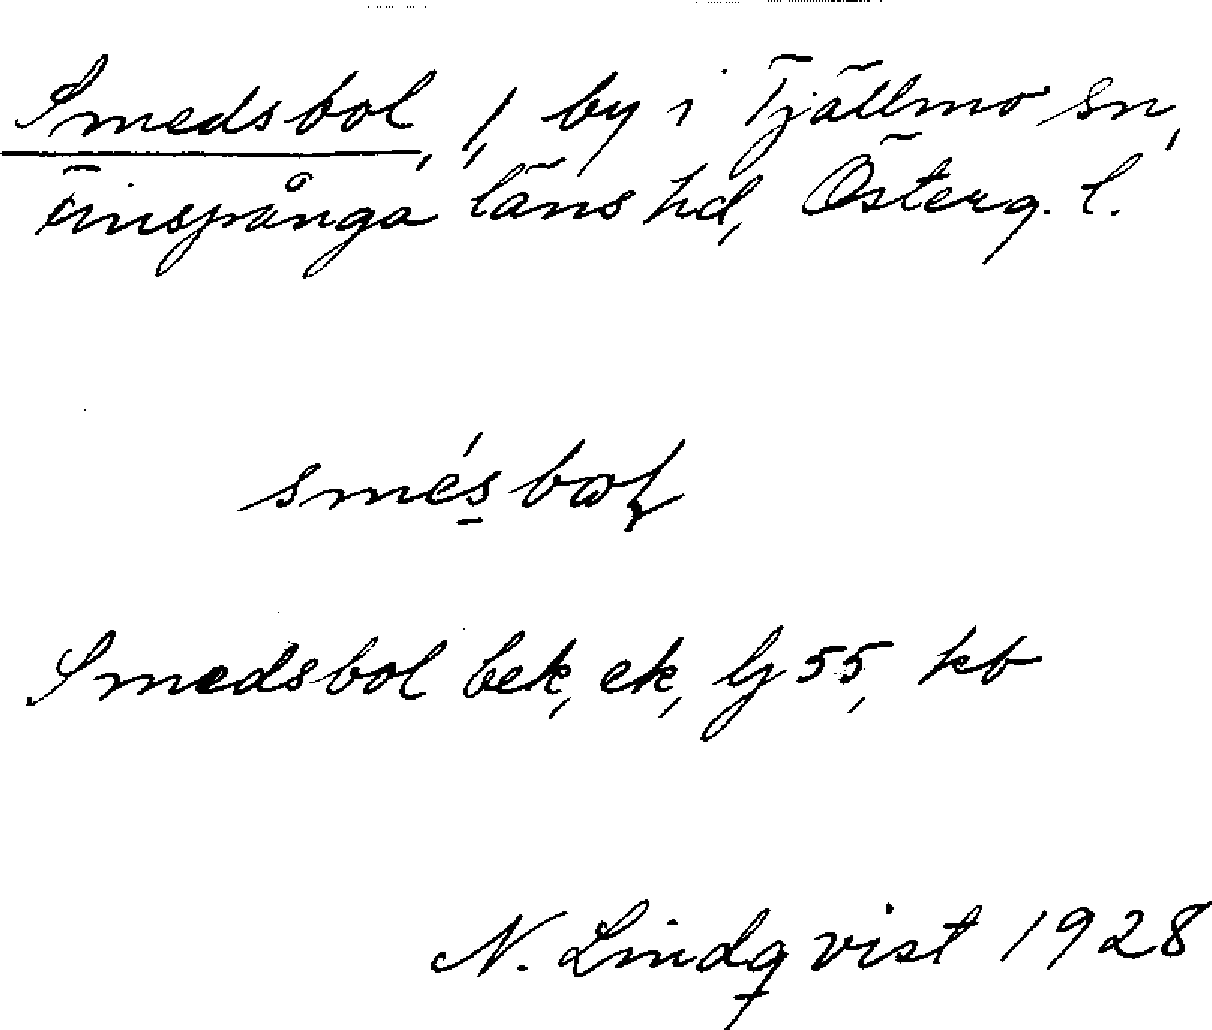 Smedsbol, 1, by i Tjällmo sn,
Finspånga läns hd, Österg. l.
Smedsbol bek, ek, lj 55, kb
N. Lindqvist 1928